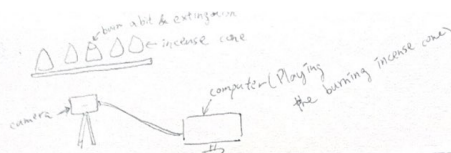 burn a bit & extinguish
incense cone
camera
computer (Playing
the burning incense cone)